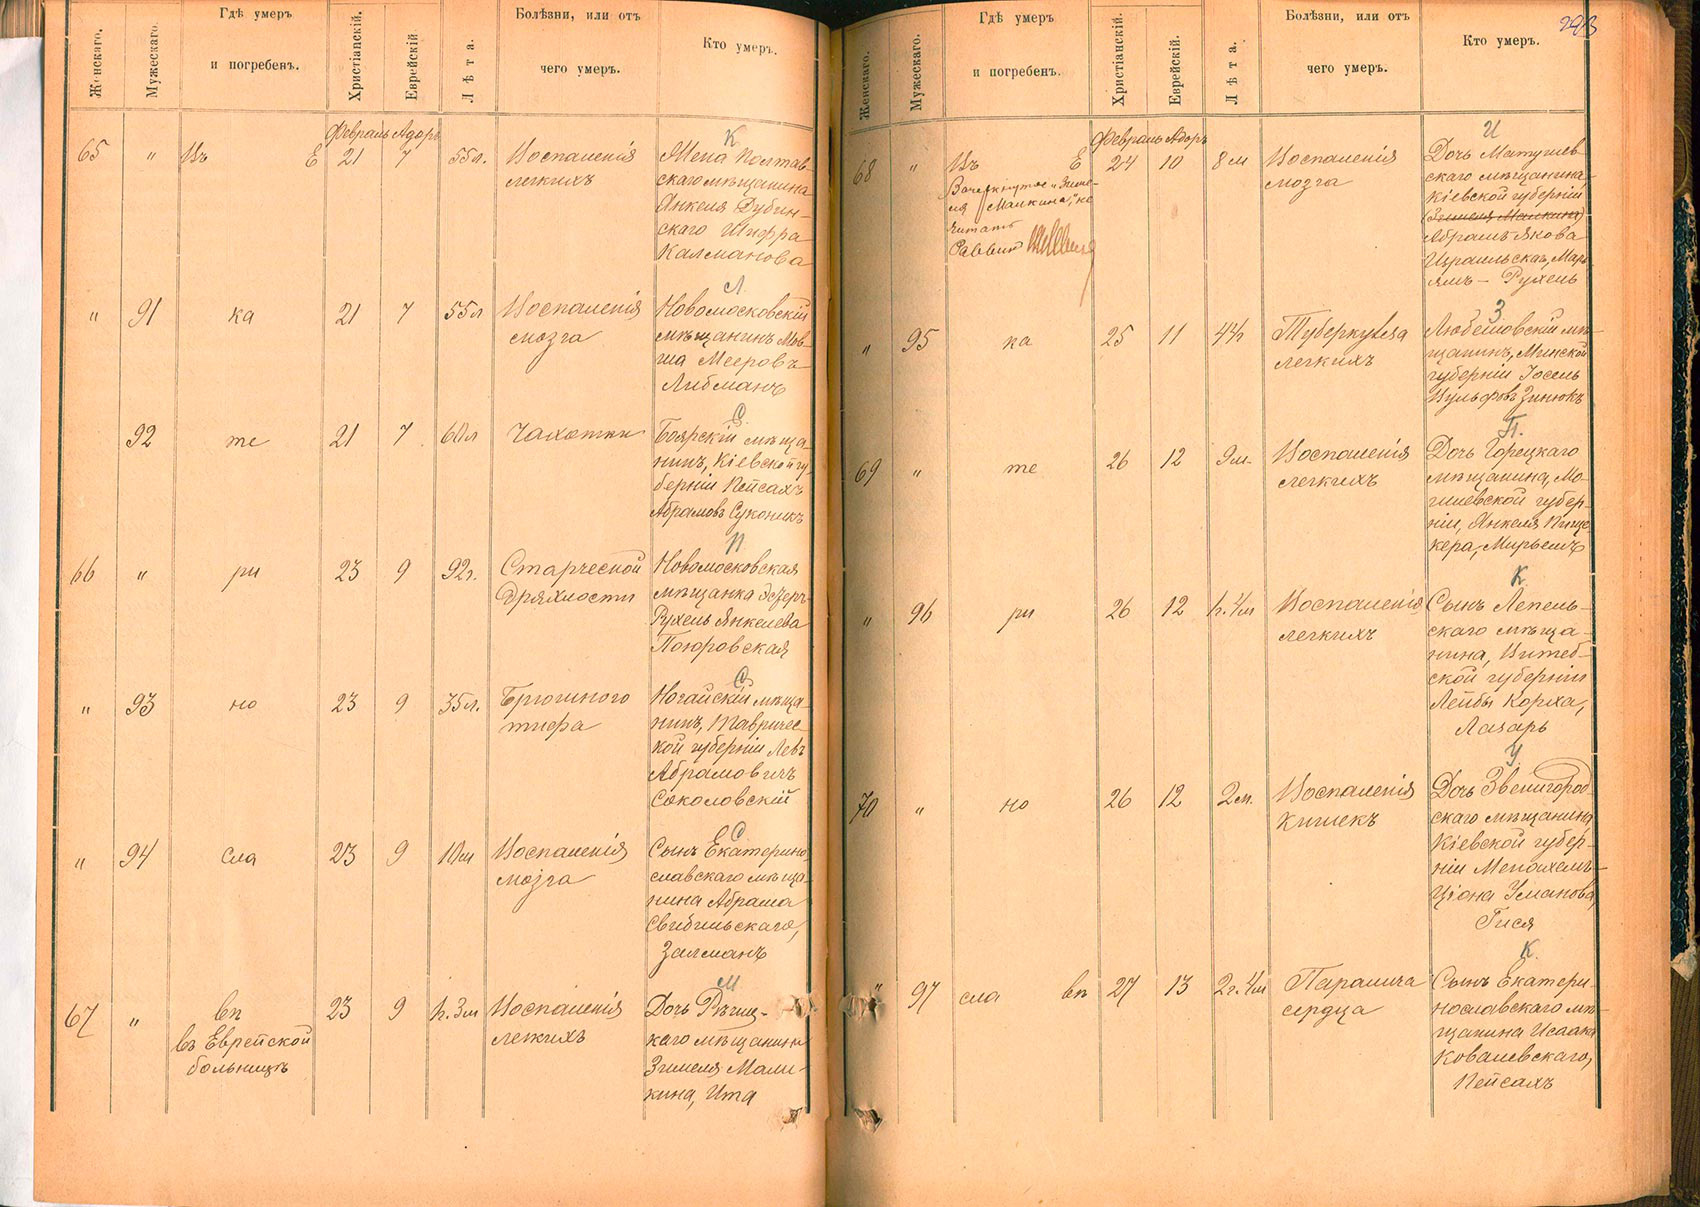 Женскаго.
Мужескаго.
Гдѣ умеръ
и погребенъ.
Христіанскій.
Еврейскій
Лѣта.
Болѣзни, или отъ
чего умеръ.
Кто умеръ.
Февраль Адоръ
К
65 " Въ Е 21 7 55л. Воспаленія
легкихъ
Жена Полтав-
скаго мѣщанина
Янкеля Дубин-
скаго Шифра
Калманова
Л
" 91 ка 21 7 55л Воспаленія
мозга
Новомосковскій
мѣщанинъ Мов-
ша Мееровъ
Либманъ
С
92 те 21 7 60л Чахотки
Боярскій мѣща-
нинъ, Кіевской гу
берніи Пейсахъ
Абрамовъ Суконикъ
П
66 " ри 23 9 92г. Старческой
дряхлости
Новомосковская
мѣщанка Эстеръ-
Рухель Янкелева
С
" 93 но 23 9 35л. Брюшного
тифа
Ногайскій мѣща-
нинъ, Тавричес-
кой губерніи Левъ
Абрамовичъ
Соколовскій
С
" 94 сла 23 9 10м Воспаленія
мозга
Сынъ Екатерино
славскаго мѣща-
нина Абрама
Залманъ
М
67 " вп 23 9 1г. 3м Воспаленія
легкихъ
въ Еврейской
больницѣ
Дочь Рѣчиц-
каго мѣщанина
Зимеля Мали-
кина, Ита
293
Женскаго.
Мужескаго.
Гдѣ умеръ
и погребенъ.
Христіанскій.
Еврейскій.
Лѣта.
Болѣзни, или отъ
чего умеръ.
Кто умеръ.
Февраль Адоръ
И
68 " Въ Е 24 10 8м Воспаленія
мозга
Зачеркнутое "Зиме-
ля Маликина," не
читать
Раввинъ
Дочь
скаго мѣщанина,
Кіевской губерніи
(Зимеля Маликина)
Абрамъ Якова
Израильскаго, Марь
ямъ - Рухель
З
" 95 ка 25 11 44г Туберкулеза
легкихъ
Любешовскій мѣ-
щанинъ, Минской
губерніи Іосель
Вульфовъ Зинюкъ
П.
69 " те 26 12 9м. Воспаленія
легкихъ
Дочь Горецкаго
мѣщанина, Мо-
гилевской губер-
ніи, Янкеля Пинс
кера, Мирьемъ
К
" 96 ри 26 12 1г. 4м Воспаленія
легкихъ
Сынъ Лепель-
скаго мѣща-
нина, Витеб-
ской губерніи
Лейбы Корха,
Лазарь
У
70 " но 26 12 2м. Воспаленія
кишекъ
Дочь Звенигород-
скаго мѣщанина
Кіевской губер-
ніи Менахемъ-
Ціона Уманова,
Гися
К.
" 97 сла вп 27 13 2г. 4м Паралича
сердца
Сынъ Екатери-
нославскаго мѣ-
щанина Исаака
Ковалевскаго,
Пейсахъ